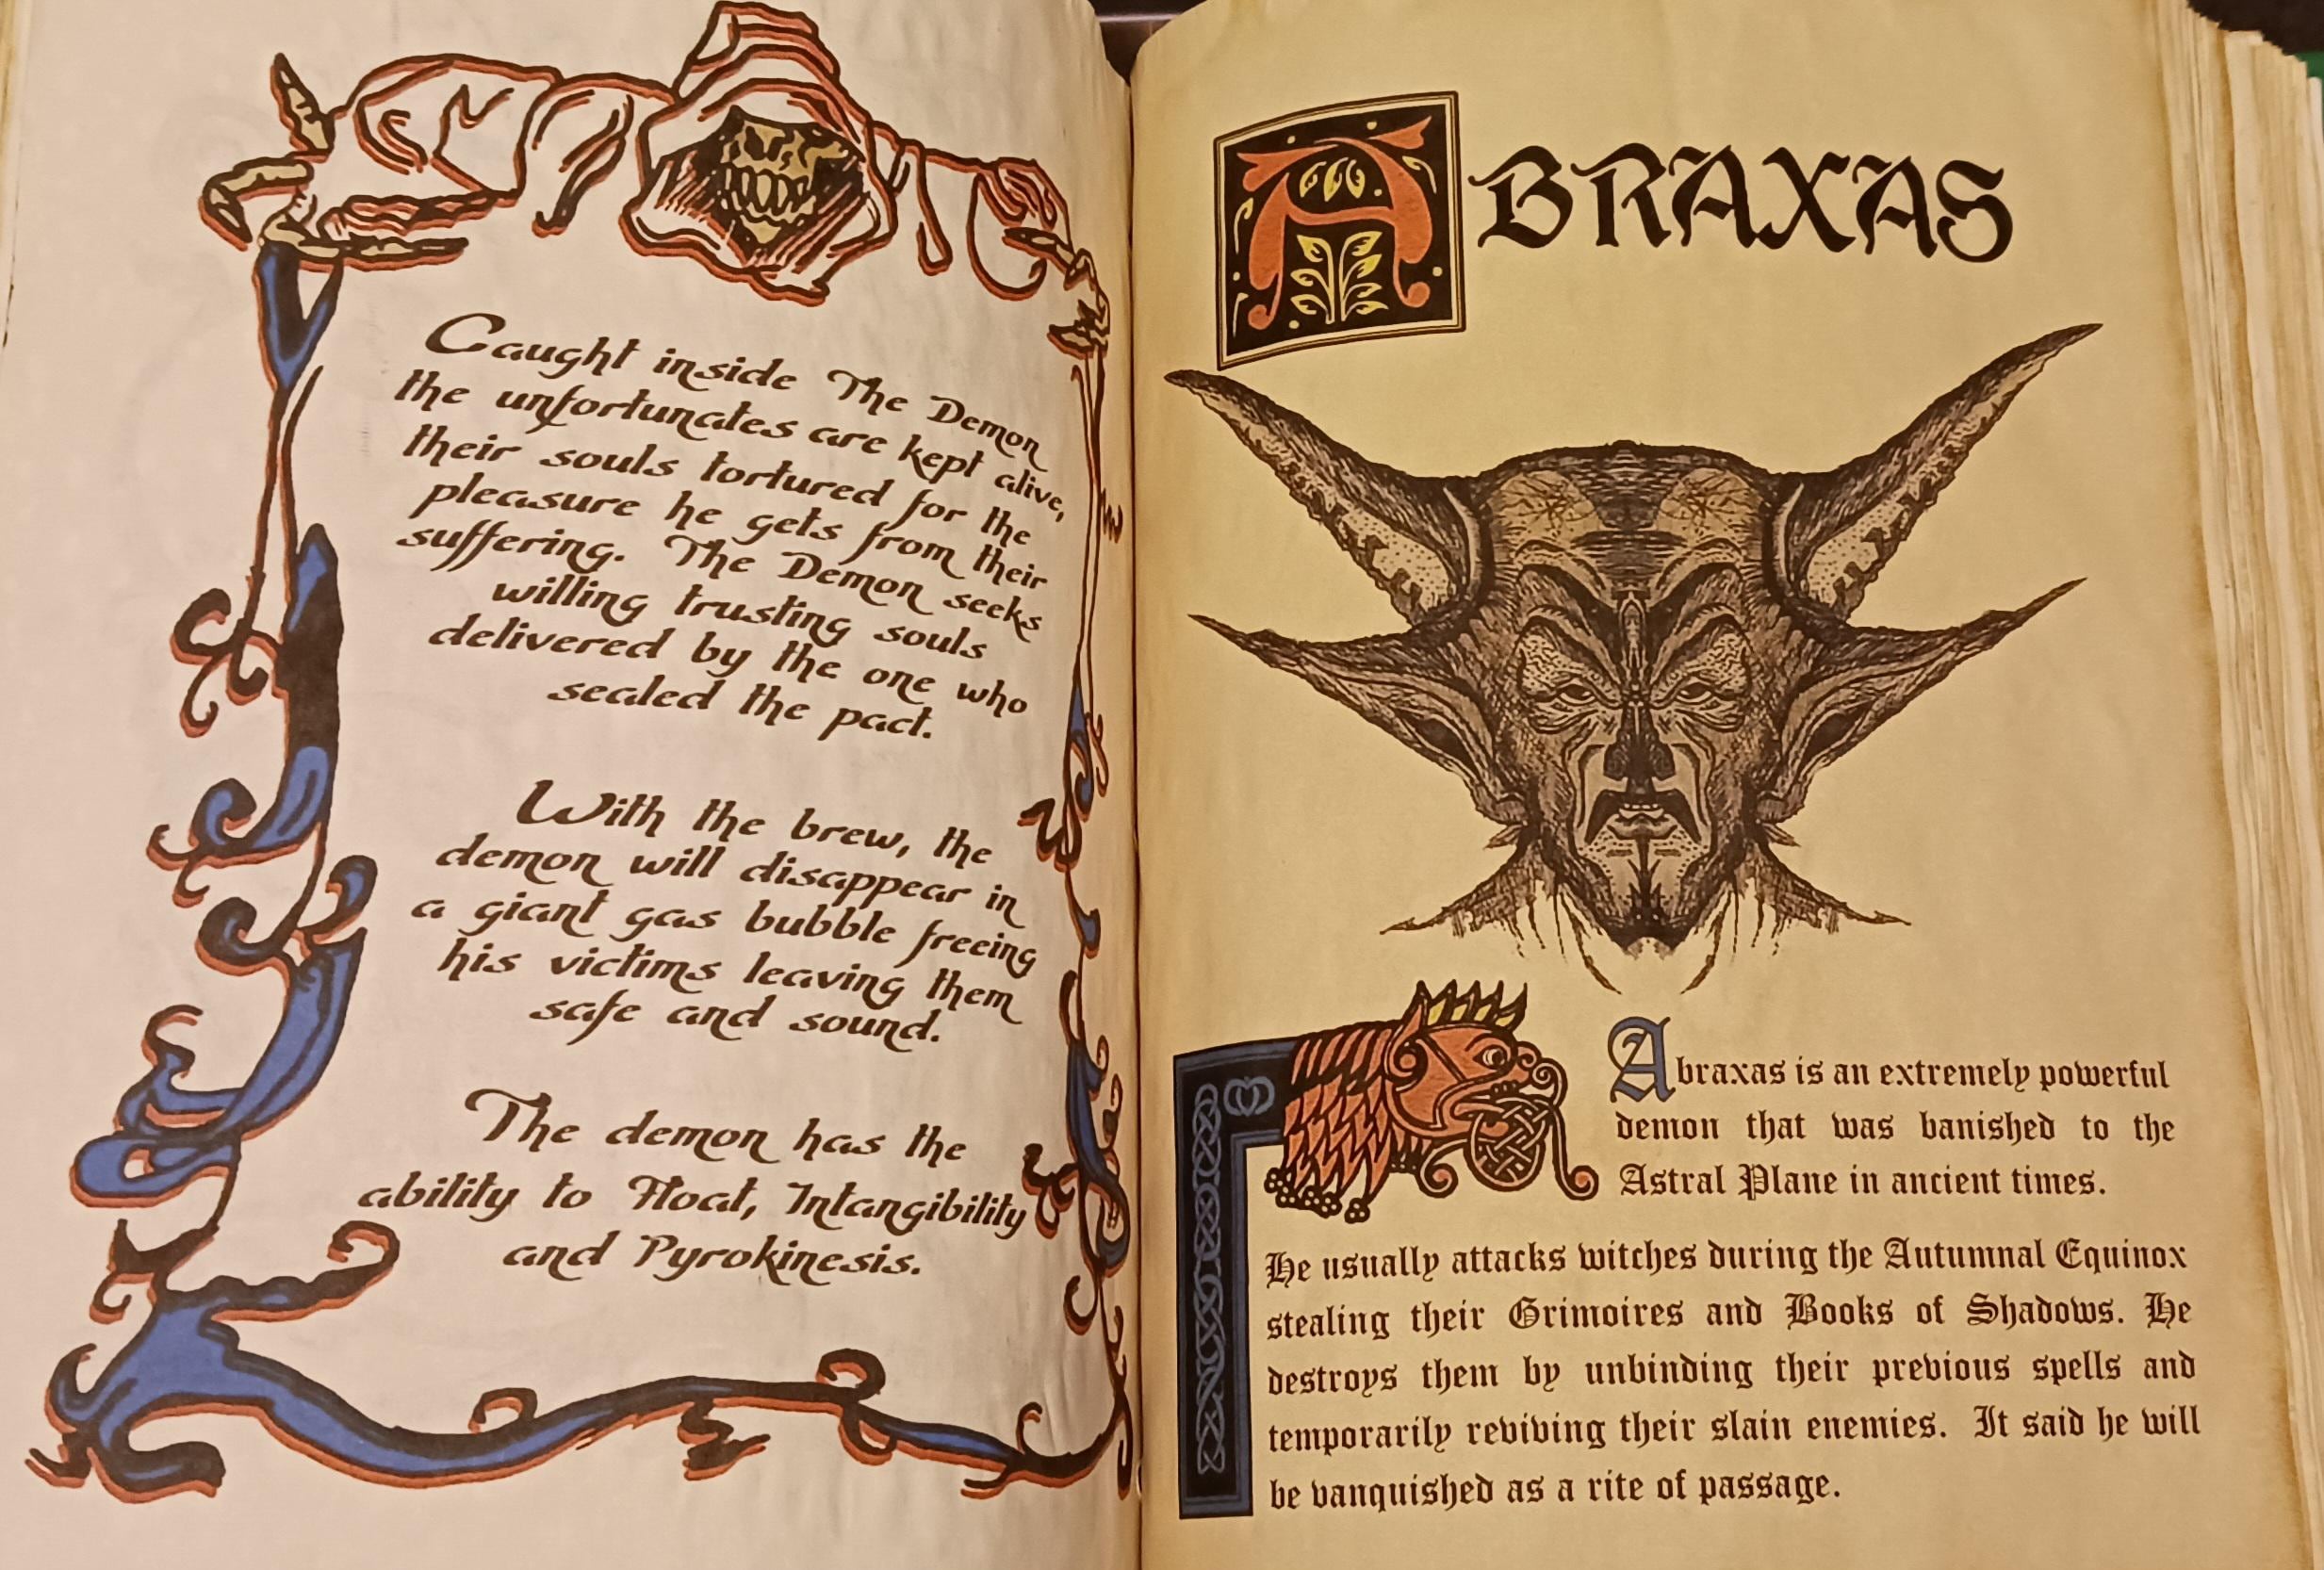 Caught inside The Demon
the unfortunates are kept alive,
their souls tortured for the
pleasure he gets from their
suffering. The Demon seeks
willing trusting souls
delivered by the one who
sealed the pact.
With the brew, the
demon will disappear in
a giant gas bubble freeing
his victims leaving them
safe and sound.
The demon has the
ability to Float, Intangibility
and Pyrokinesis.
ABRAXAS
Abraxas is an extremely powerful
demon that was banished to the
Astral Plane in ancient times.
He usually attacks witches during the Autumnal Equinox
stealing their Grimoires and Books of Shadows. He
destroys them by unbinding their previous spells and
temporarily reviving their slain enemies. It said he will
be vanquished as a rite of passage.